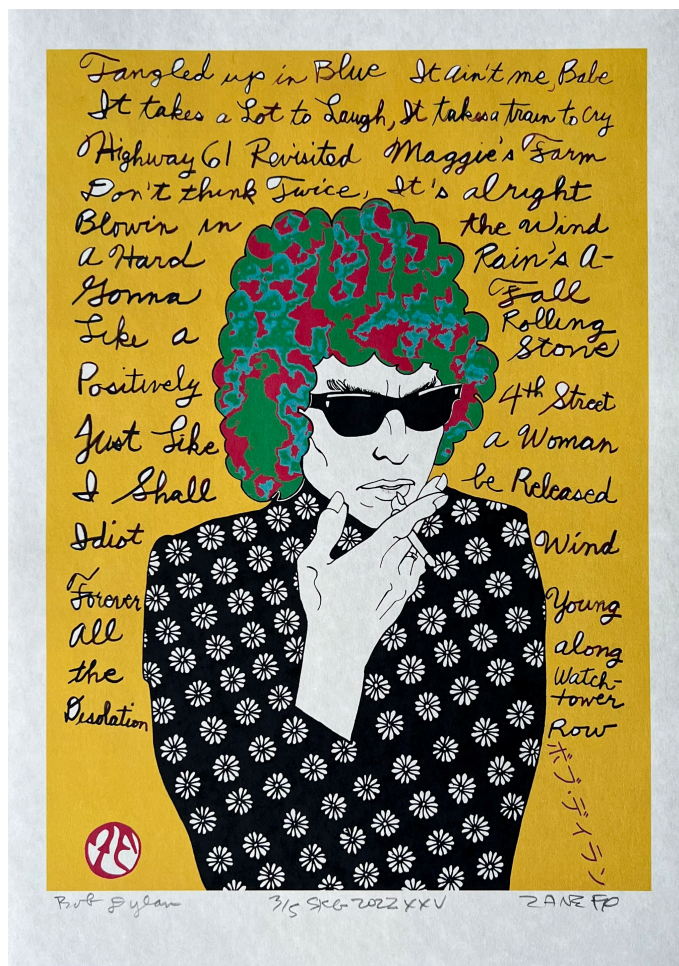 Tangled up in Blue It ain't me, Babe
It takes a Lot to Laugh, It takes a train to cry
Highway 61 Revisited Maggie's Farm
Don't think Twice, It's alright
Blowin in the Wind
a Hard Rain's A-
Gonna Fall
Like a Rolling Stone
Positively 4th Street
Just Like a Woman
I Shall be Released
Idiot Wind
Forever Young
all along
the Watch-
tower
Desolation Row
ボブ・ディラン
Bob Dylan 3/5 SKG 2022 XXV ZANE